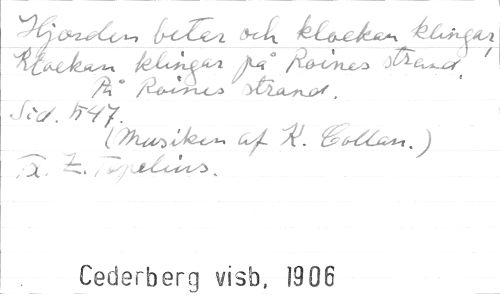 Hjorden betar och klockan klingar,
Klockan klingar på Roines strand,
På Roines strand.
Sid. 547.
(Musiken af K. Collan.)
Tx. Z. Topelius.
Cederberg visb, 1906